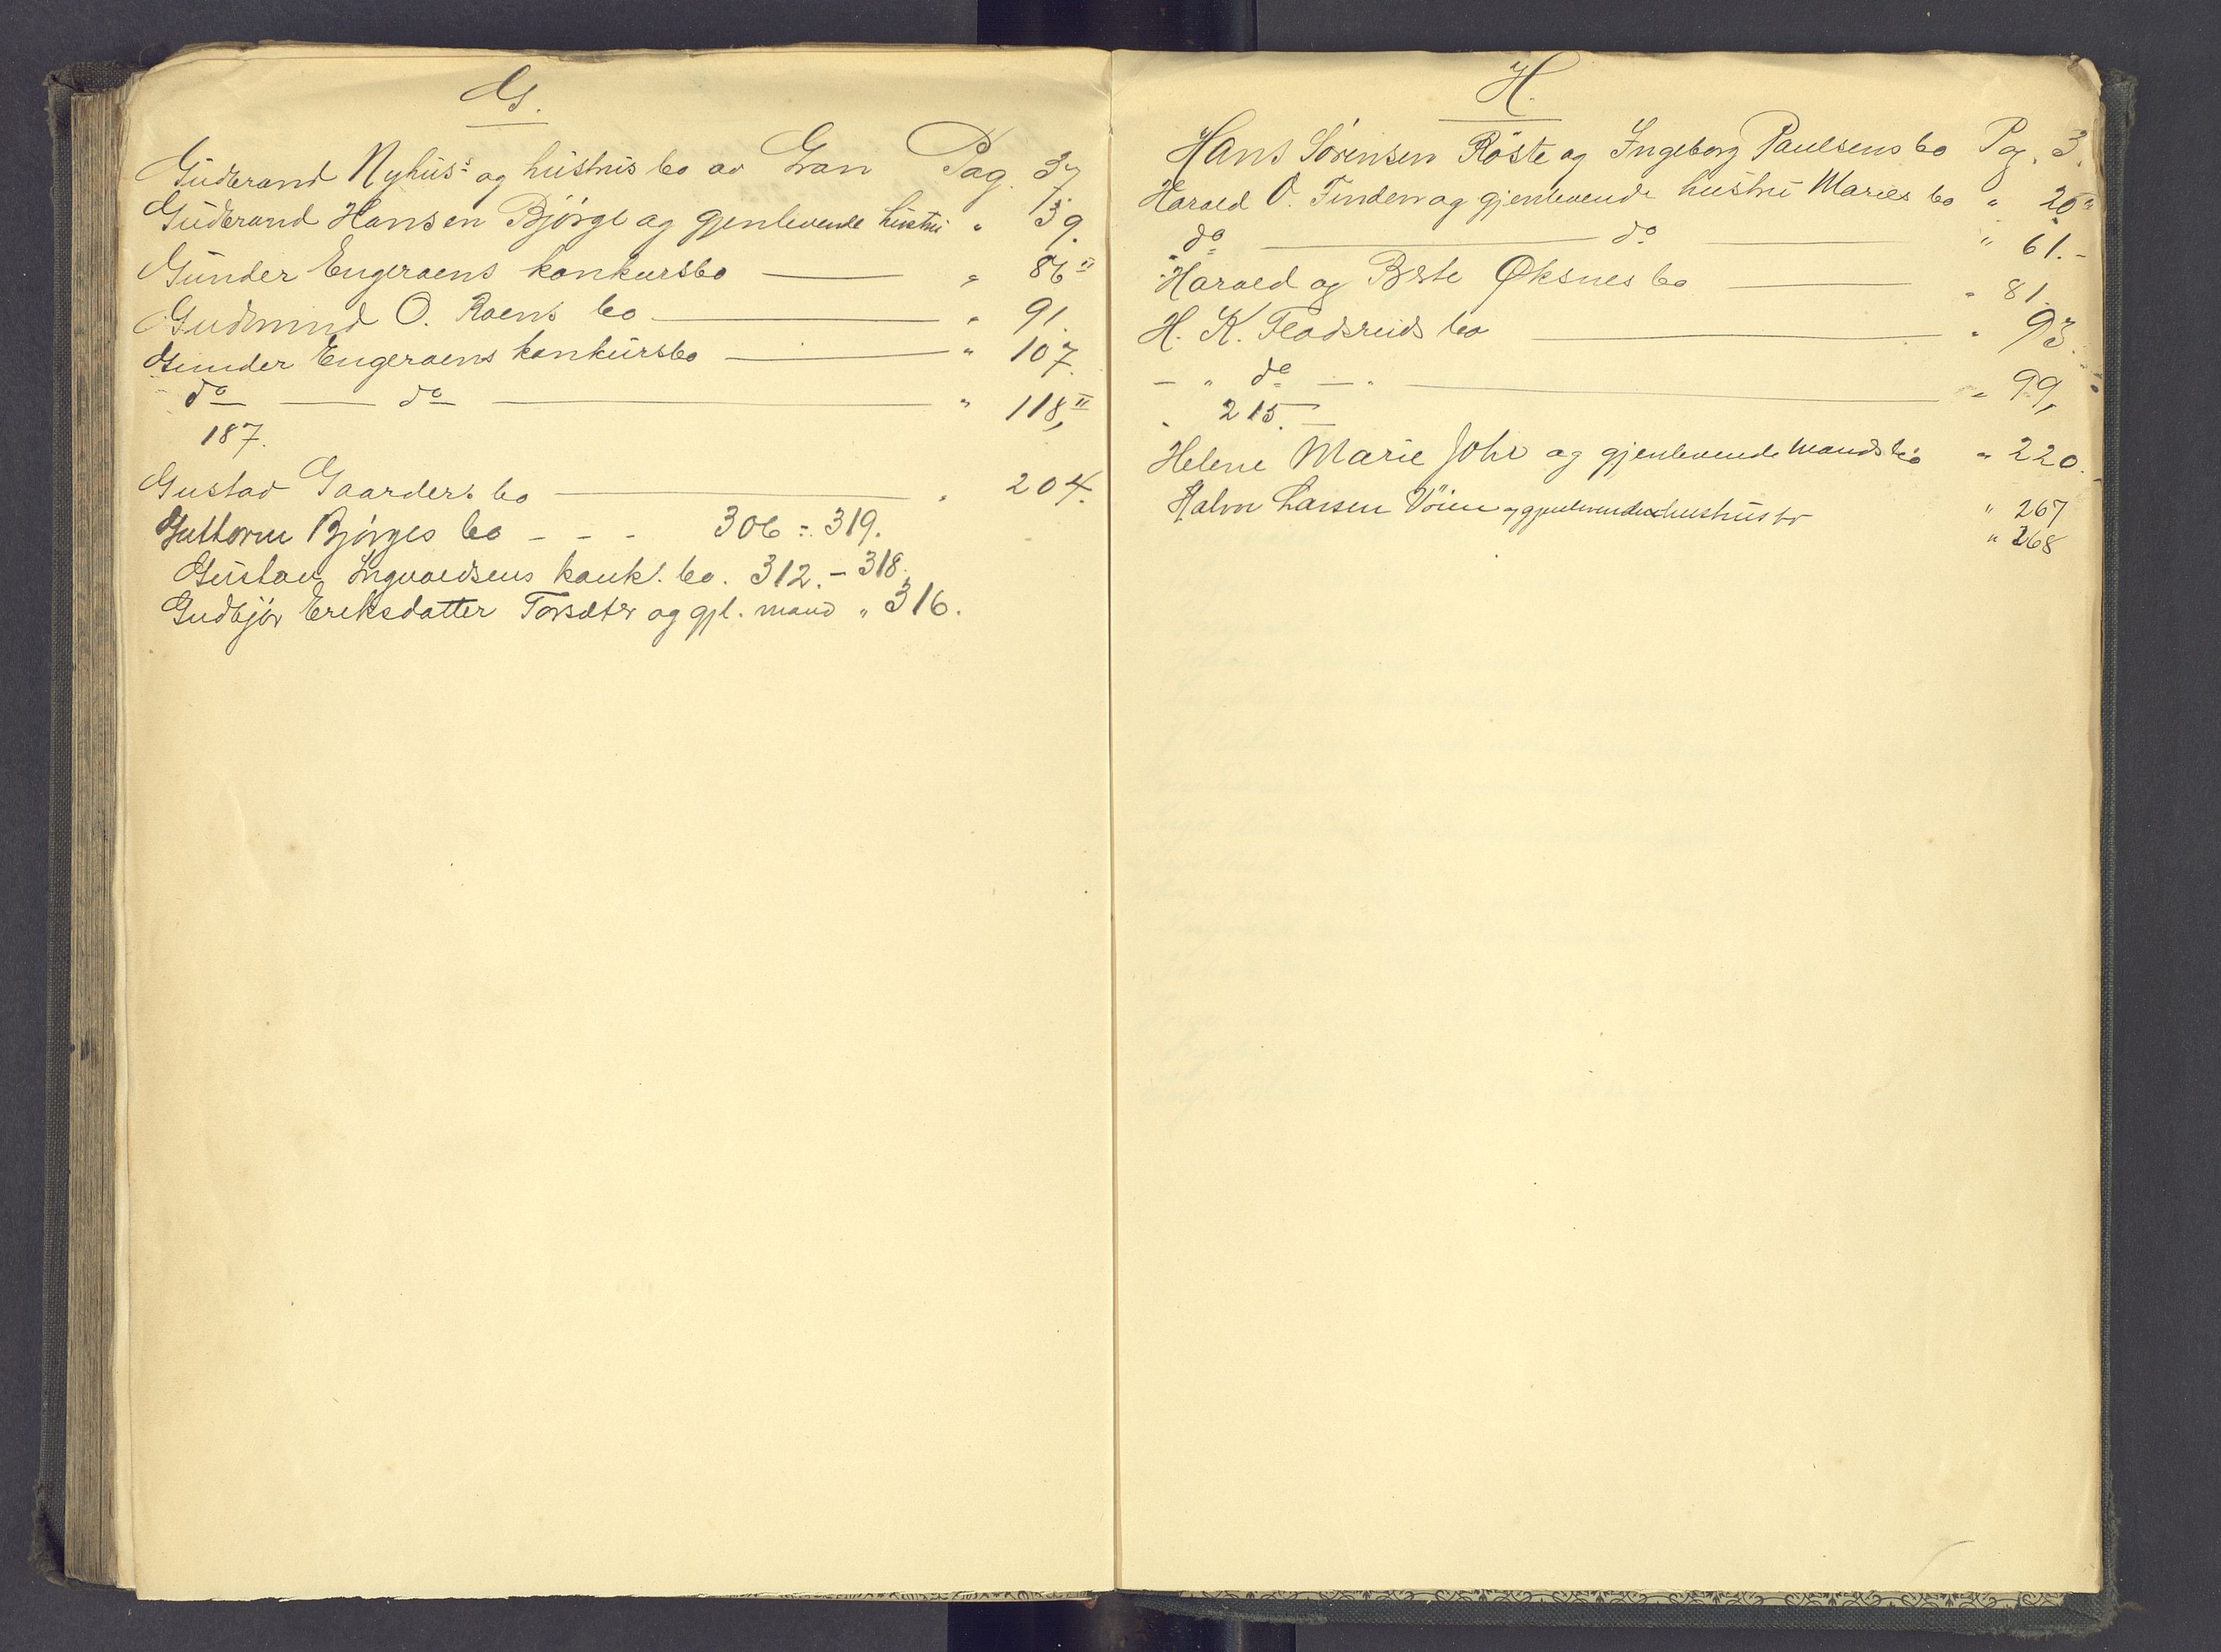 G.
Gudbrand Nyhus's og hustrus bo av Gran Pag. 37.
Gudbrand Hansen Bjørge og gjenlevende hustru " 39.
Gunder Engeraens konkursbo — " 86"
Gudmund O. Roens bo — " 91.
Gunder Engeraens konkursbo — " 107.
do — do — " 118,"
187.
Gustav Gaarders bo — " 204.
Guttorm Bjørges bo - - - 306 = 319.
Gustav Ingvaldsens konk. bo. 312. - 318.
Gudbjør Eriksdatter Torsæter og gjl. mand " 316.
H.
Hans Sørensen Røste og Ingeborg Paulsens bo Pag. 3.
Harald O. Finden og gjenlevende hustru Maries bo " 20"
" do — do — " 61.-
Harald og Øksnes bo — " 81.
H. K. Fladsruds bo — " 93.
- " do — " — " 99,
" 215. —
Helene Marie Johr og gjenlevende mands bo " 220.
Halvor Larsen Vöien og gjenlevende hustrus bo " 267
" 268